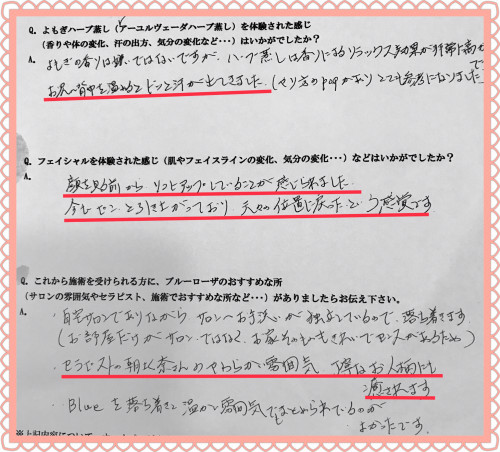 Q. よもぎハーブ蒸し(アーユルヴェーダハーブ蒸し)を体験された感じ
(香りや体の変化、汗の出方、気分の変化など・・・)はいかがでしたか?
A. よもぎの香りは嫌いではないですが、ハーブ蒸しは香りによるリラックス効果が非常に高
お尻、背中を温めると ドッと汗が出てきました。(やり方のpopがあり とても参考になりました
Q. フェイシャルを体験された感じ(肌やフェイスラインの変化、気分の変化・・・)などはいかがでしたか?
A.
顔を見る前から リフトアップしていることが感じられました
引き上がっており 元々の位置に戻ったという感覚です
Q. これから施術を受けられる方に、ブルーローザのおすすめな所
(サロンの雰囲気やセラピスト、施術でおすすめな所など・・・)がありましたらお伝え下さい。
A.
・自宅サロンでありながら サロンへお手洗いが独立しているので、落ち着きます
(お部屋だけがサロンではなく、お家そのものがきれいでセンスがあるため)
・セラピストの朝比奈さんのやわらかい雰囲気 丁寧なお人柄にも
癒されます
・Blueを落ち着き 温かい雰囲気でまとめられているのが
よかったです。